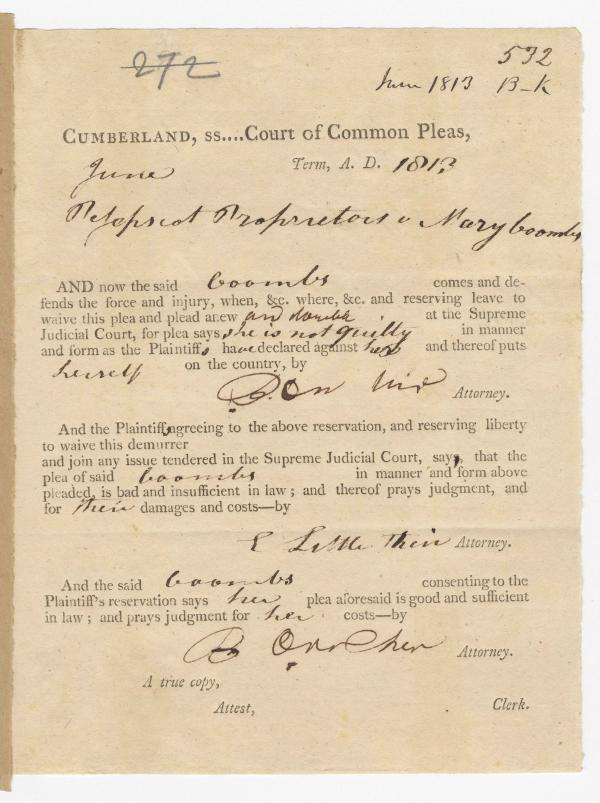 272
532
June 1813 B-K
CUMBERLAND, ss....Court of Common Pleas,
June Term, A. D. 1813
Pejepscot Proprietors v Mary Coombs
AND now the said Coombs comes and de-
fends the force and injury, when, &c. where, &c. and reserving leave to
waive this plea and plead anew and double at the Supreme
Judicial Court, for plea says she is not guilty in manner
and form as the Plaintiffs have declared against her and thereof puts
herself on the country, by
B. Orr Attorney.
And the Plaintiffs agreeing to the above reservation, and reserving liberty
to waive this demurrer
and join any issue tendered in the Supreme Judicial Court, say, that the
plea of said Coombs in manner and form above
pleaded, is bad and insufficient in law; and thereof prays judgment, and
for their damages and costs—by
Little their Attorney.
And the said Coombs consenting to the
Plaintiff's reservation says her plea aforesaid is good and sufficient
in law; and prays judgment for her costs—by
B Orr her Attorney.
A true copy,
Attest, Clerk.